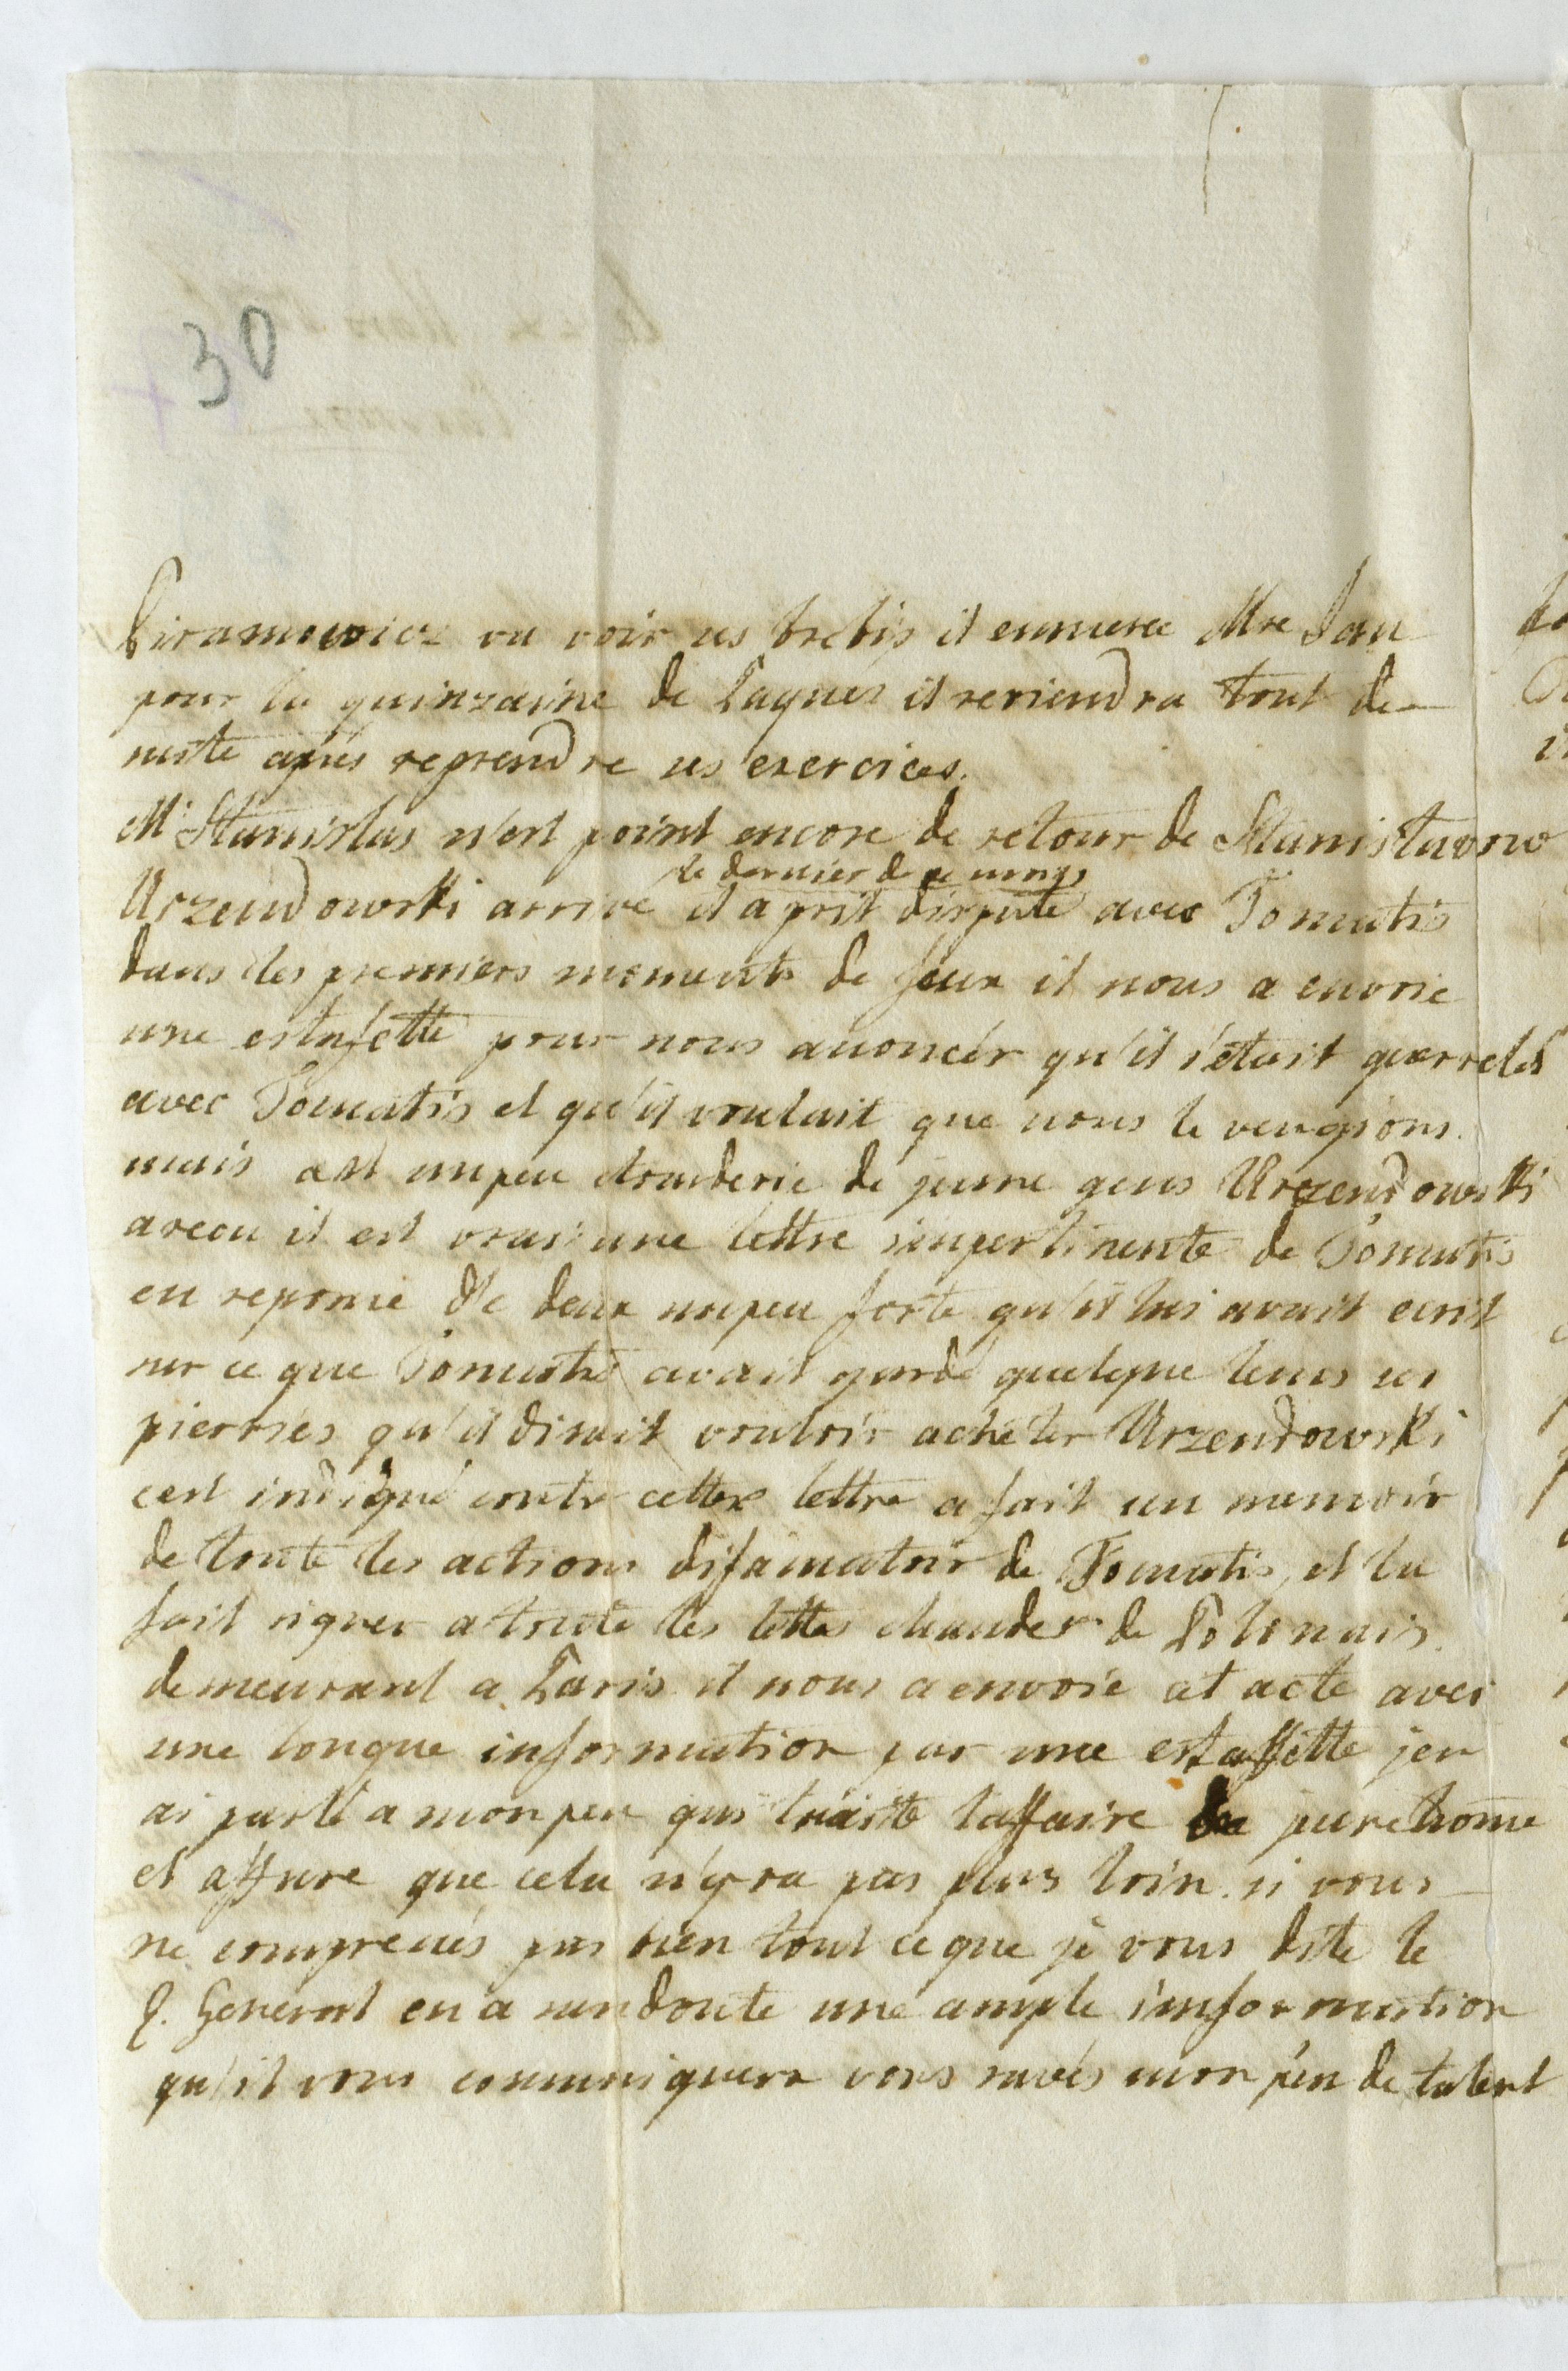 30
Piramowicz va voir ses brebis il enmene Mre Jan
pour la quinzaine de Paques il reviendra tout de
suite aprés reprendre ses exercices.
Mr Stanislas n'est point encore de retour de Stanistawow
le dernier de ce moys
Urzendowski arrivé il a prit dispute avec Tomatis
dans les premiers moments de feux il nous a envoie
une estafette pour nous anoncér qu'il s'était querrelés
avec Tomatis et qu'il voulait que nous le vengions.
mais cest un peu etourderie de jeune gens Urzendowski
a recu il est vrai une lettre impertinente de Tomatis
en reponse de deux un peu forte qu'il lui avait ecrit
sur ce que Tomatis avait gardé quelque tems ses
pierries qu'il disait vouloir acheter Urzendowski
cest indigné contre cette lettre a fait un memoir
de toute les actions difamatoir de Tomatis, et la
fait signer a toute les tettes chaudes de Polonais
demeurant a Paris il nous a envoié cet acte avec
une longue information par une estaffette jen
ai parlé a mon per qui traite laffaire de jeune home
et assure que cela n'yra pas plus loin. si vous
ne comprenés pas bien tout ce que je vous dite le
P. General en a sandoute une ample information
qu'il vous communiquera vous savés mon peu de talent